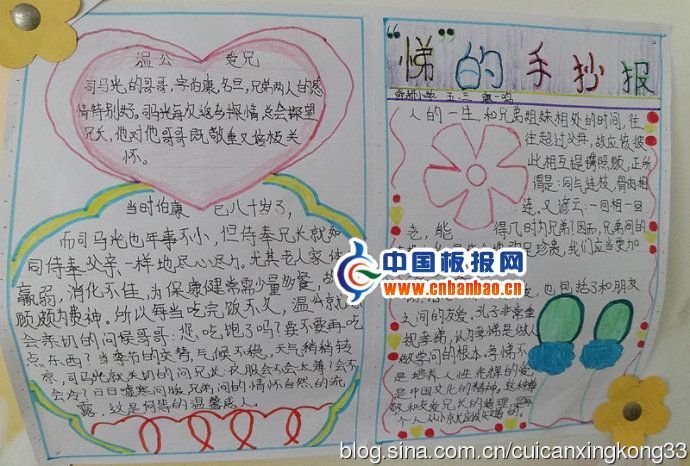 温公 爱兄
司马光的哥哥,字伯康,名旦,兄弟两人的感
情特别好。司马光每次返乡探情,总会探望
兄长,他对他哥哥既敬重又该极关
怀。
当时伯康 已八十岁了,
而司马光也年事不小,但侍奉兄长就如
同侍奉父亲一样地尽心尽力,尤其老人家体
羸弱,消化不佳,为保康健常需少量多餐,
顾颇为费神。所以每当吃完饭不久,温公就
会亲切的问候哥哥:您吃饱了吗?要不要再吃
点东西?当季节的交替,气候不稳,天气稍稍转
凉,司马光就关切的问兄长:衣服会不会太薄?会不
会冷?日日嘘寒问暖,兄弟间的情怀自然的流
露,这是何等的温馨感人。
“悌”的手抄报
人的一生,和兄弟姐妹相处的时间,往
往超过父母,故应该彼
此相互提携照顾,正所
谓是:同气连枝,骨肉相
连。又谚云:一回相见一回
老,能 得几时为兄弟?因而,兄弟间的
珍贵,我们应当更加
也包括了和朋友
之间的友爱,孔子非常重
视孝悌,认为孝悌是做人
做学问的根本。孝悌不
是培养人性光辉的爱
是中国文化的精神,
个人从小京尤应该实
中国板报网
www.cnbanbao.cn
blog.sina.com.cn/cuicanxingkong33